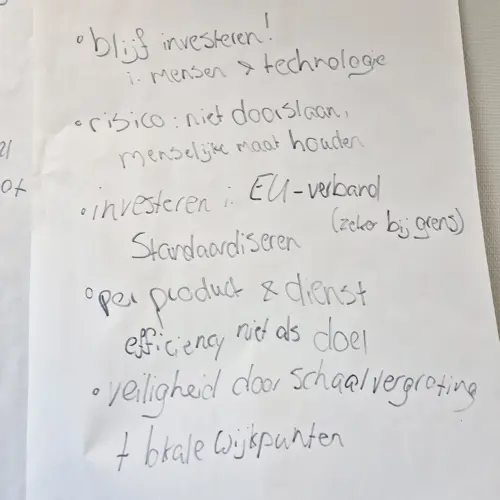 • blijf investeren!
i. mensen & technologie
• risico: niet doorslaan,
menselijke maat houden
• investeren i. EU-verband
(zeker bij grens)
Standaardiseren
• per product & dienst
efficiency niet als doel
• veiligheid door schaalvergroting
+ lokale wijkpunten